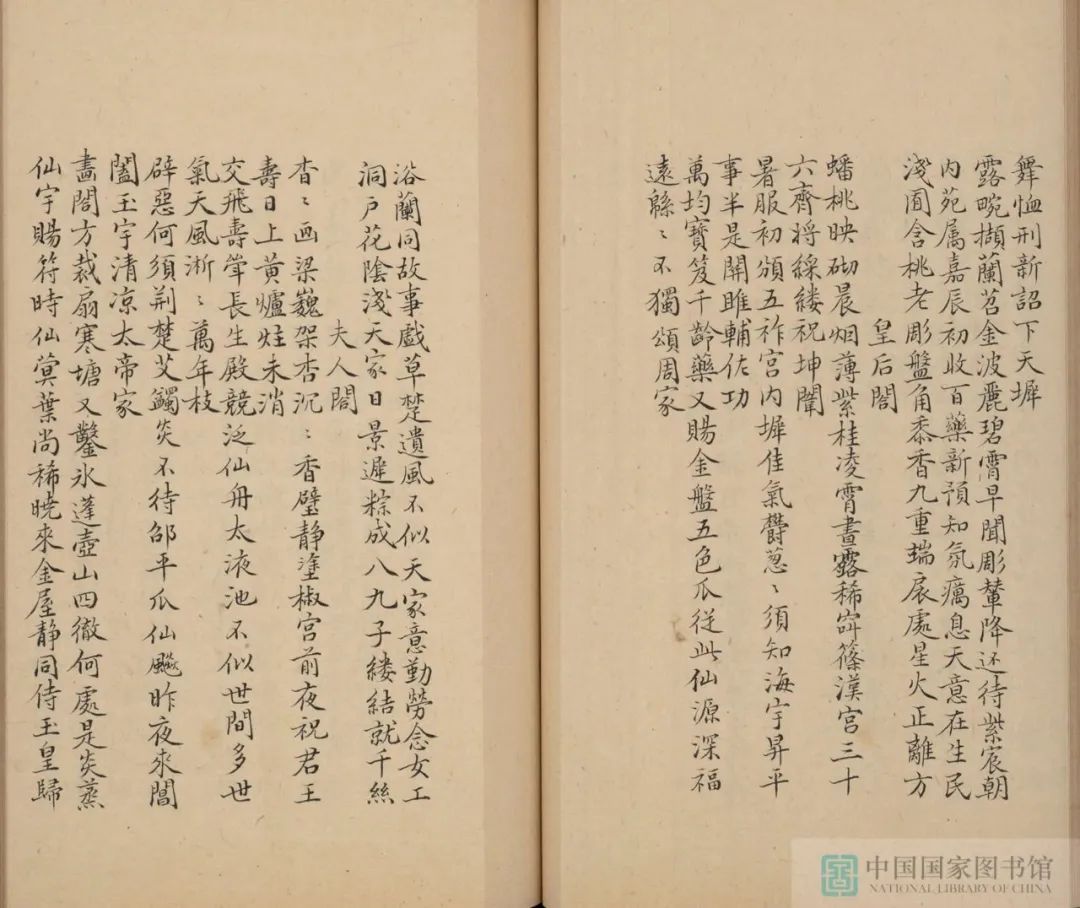 舞恤刑新詔下天墀
露畹擷蘭苕金波麗碧霄早聞彫輦降还待紫宸朝
内苑属嘉辰初收百藥新預知氛癘息天意在生民
淺囿含桃老彫盤角黍香九重端扆處星火正離方
皇后閤
蟠桃映砌晨烟薄紫桂凌霄晝露稀寳篆漢宫三十
六齊将綵縷祝坤闈
暑服初頒五祚宫内墀佳氣欝葱〻須知海宇昇平
事半是関雎輔佐功
萬均寳笈千齡藥又賜金盤五色瓜従此仙源深福
遠緜〻不獨頌周家
浴蘭同故事戲草楚遺風不似天家意勤勞念女工
洞户花陰淺天家日景遲粽成八九子縷結就千絲
夫人閤
杳〻画梁巍架杏沉〻香壁静塗椒宫前夜祝君王
壽日上黄爐炷未消
交飛壽斝長生殿競泛仙舟太液池不似世間多世
氣天風淅〻萬年枝
辟惡何須荆楚艾蠲炎不待邵平瓜仙飈昨夜來閶
闔玉宇清凉太帝家
畫閤方裁扇寒塘又鑿氷蓬壺山四徹何處是炎蒸
仙宇賜符時仙蓂葉尚稀曉來金屋静同侍玉皇歸
中国国家图书馆
NATIONAL LIBRARY OF CHINA